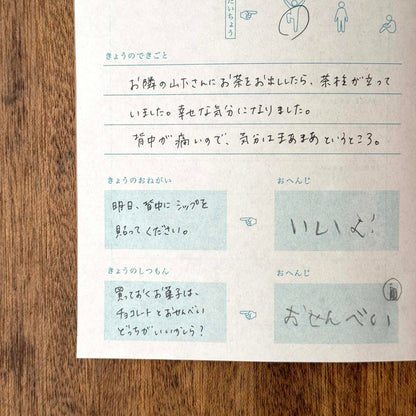 たいちょう
きょうのできごと
お隣の山下さんにお茶をお出ししたら、茶柱が立って
いました。幸せな気分になりました。
背中が痛いので、気分はまあまあというところ。
きょうのおねがい
おへんじ
明日、背中にシップを
貼ってください。
いいよ!
きょうのしつもん
おへんじ
買っておくお菓子は、
チョコレートとおせんべい
どっちがいいかしら?
おせんべい